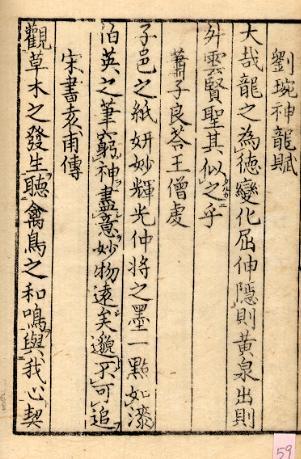 劉琬神龍賦
大哉龍之為德變化屈伸隱則黃泉出則
升雲賢聖其似之乎
蕭子良荅王僧虔
子邑之紙妍妙輝光仲将之墨一點如漆
伯英之筆窮神盡意妙物遠矣邈不可追
宋書亥甫傳
觀草木之發生聽禽鳥之和鳴與我心契
59